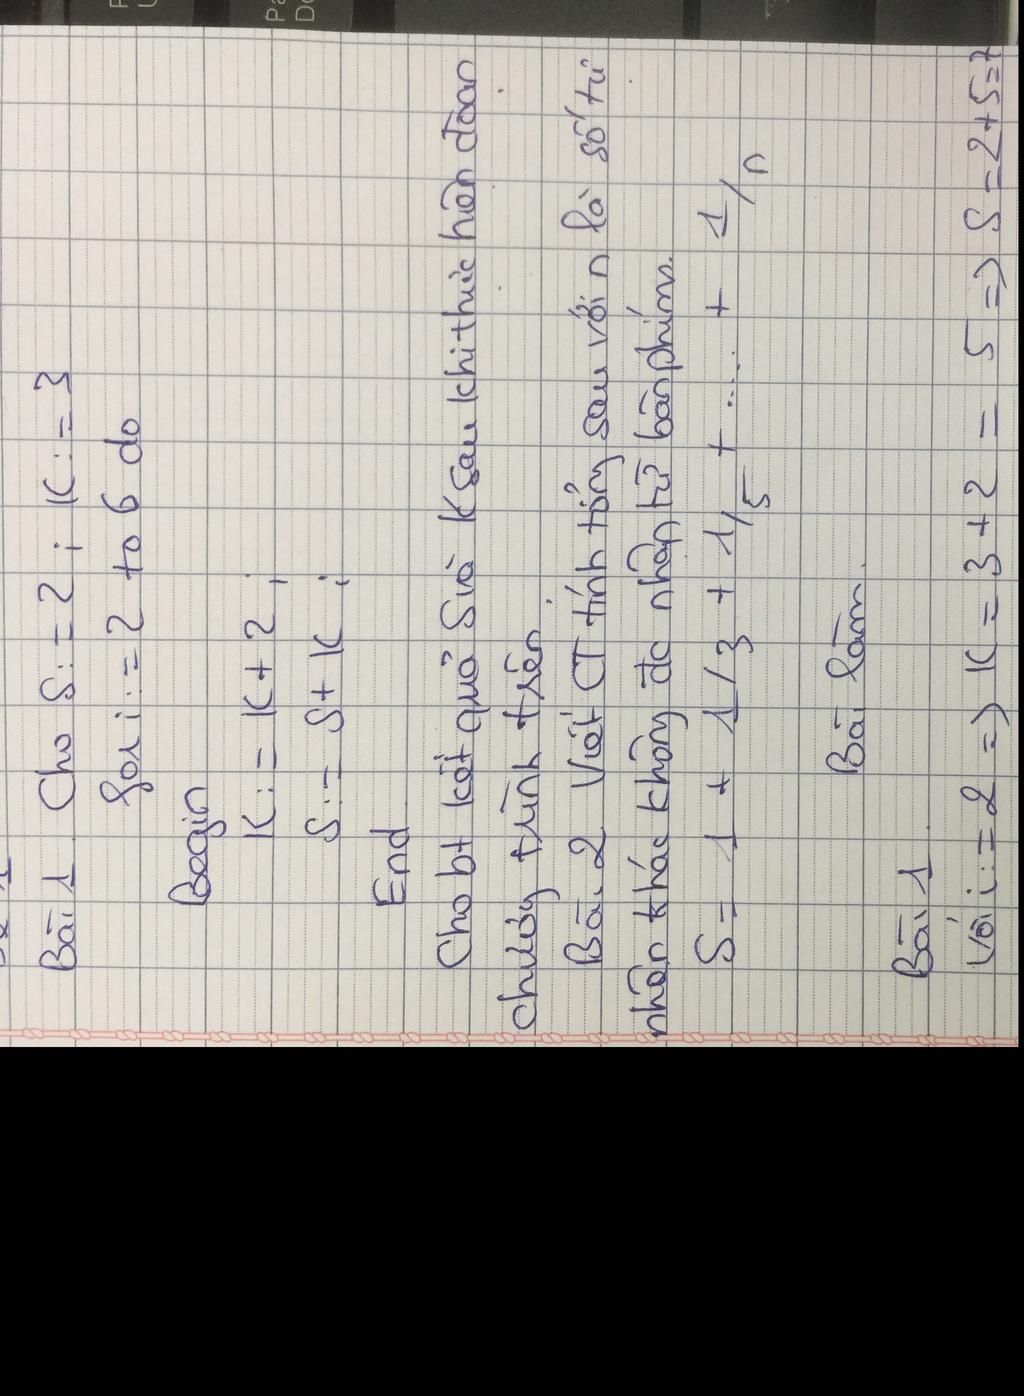 Bài 1. Cho S:=2; K:=3
for i:=2 to 6 do
Begin
K:= K+2;
S:= S+K;
End
Cho bt kết quả S và K sau khi thực hiện đoạn
chương trình trên
Bài 2 Viết CT tính tổng sau với n là số tự
nhiên khác không đc nhập từ bàn phím.
S= 1 + 1/3 + 1/5 + .... + 1/n
Bài làm.
Bài 1
Với i:=2 => K=3+2 = 5 => S=2+5=7